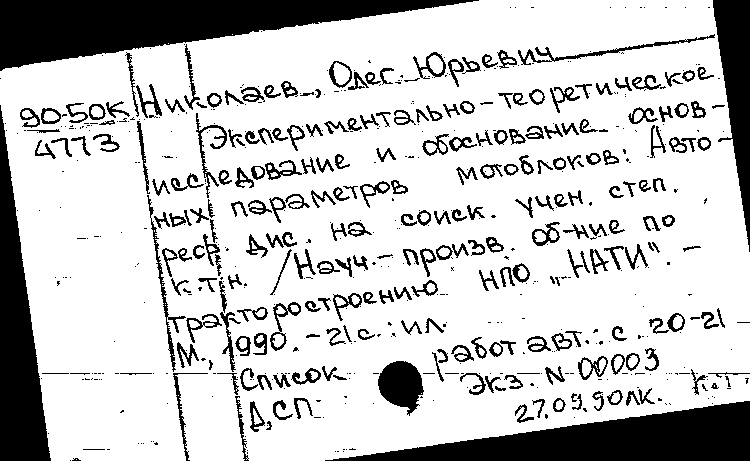 90-50К Николаев, Олег Юрьевич
4773 Экспериментально-теоретическое
исследование и обоснование основ-
ных параметров мотоблоков: Авто-
реф. дис. на соиск. учен. степ.
к.т.н. /Науч.-произв. об-ние по
тракторостроению НПО „НАТИ". -
М., 1990. - 21 с. : ил.
Список работ авт.: с. 20-21
Экз. N 00003
Д,СП
27.09.90лк.